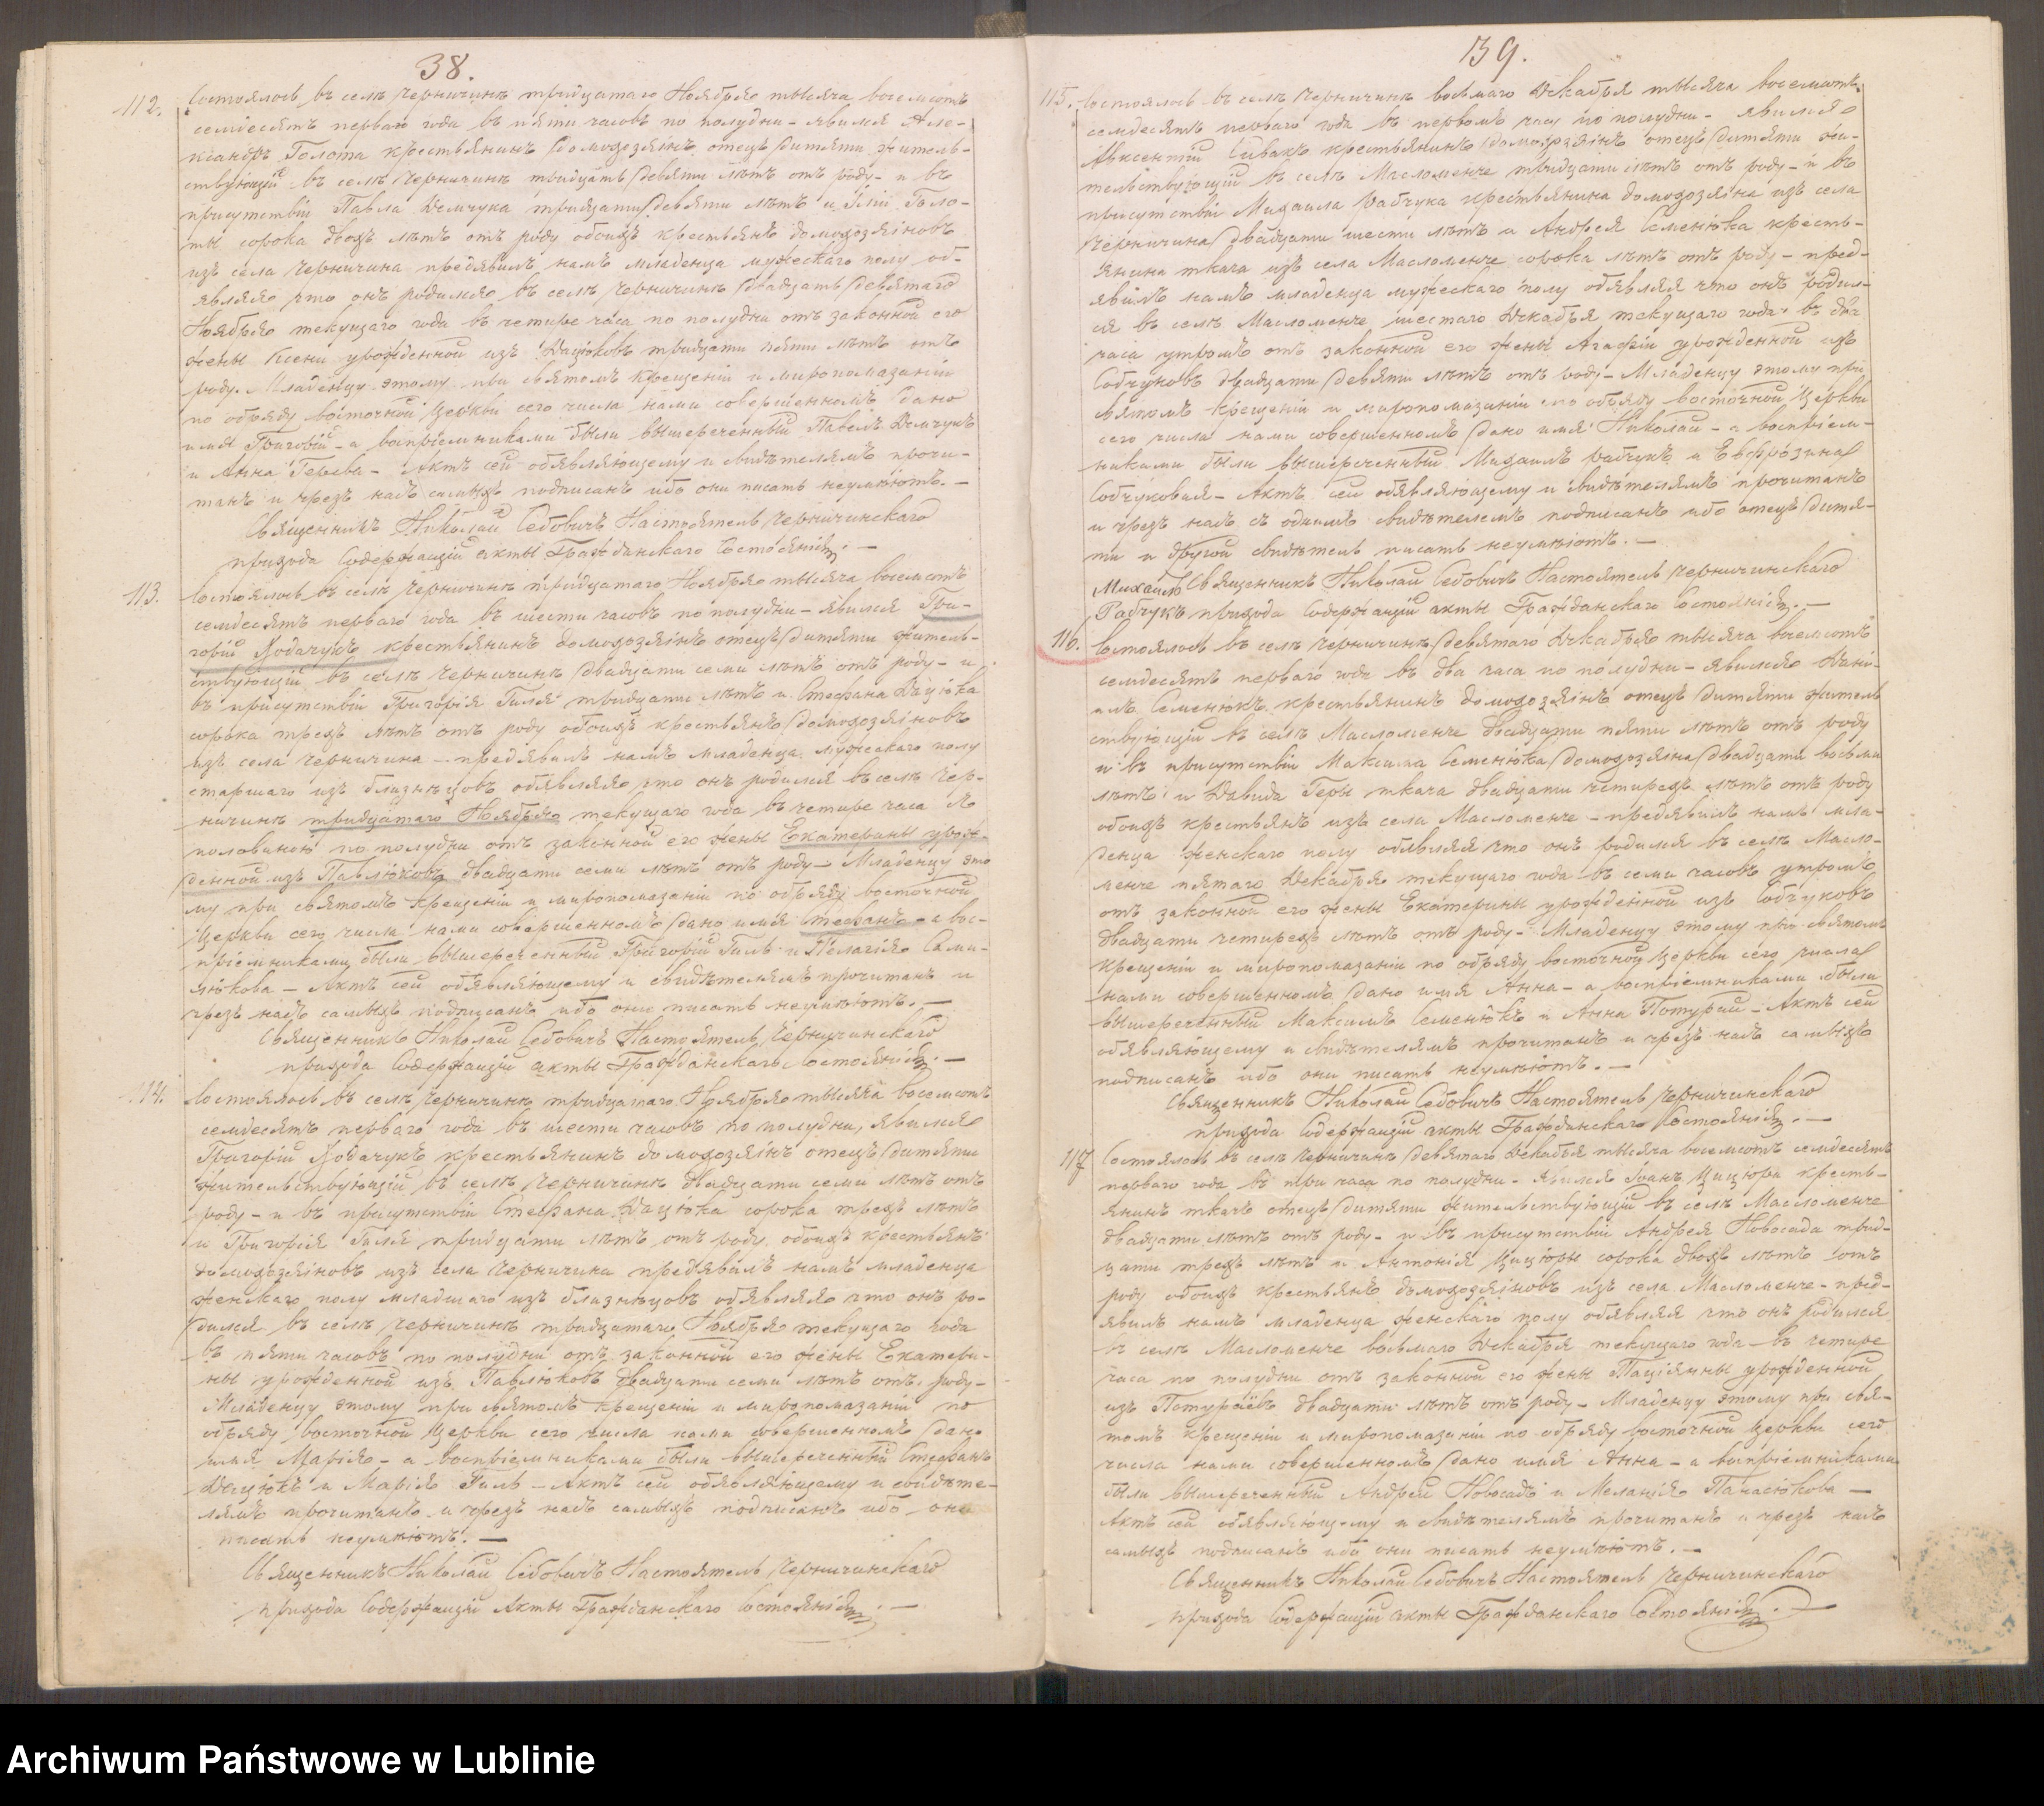 38.
112. Состоялось въ селѣ Черничинѣ тридцатаго Ноября тысяча восемсотъ
семдесятъ перваго года въ пяти часовъ по полудни – явился Але-
ксандръ Голота крестьянинъ домохозяінъ отецъ дитяти житель-
ствующій въ селѣ Черничинѣ тридцать девяти лѣтъ отъ роду – и въ
присутствіи Павла Демчука тридцати девяти лѣтъ и Голо-
ты сорока двохъ лѣтъ отъ роду обоихъ крестьянъ домохозяіновъ
изъ села Черничина предявилъ намъ младенца мужескаго полу об-
являя что онъ родился въ селѣ Черничинѣ двадцать девятаго
Ноября текущаго года въ четире часа по полудни отъ законной его
жены Ксени урожденной изъ Дацюковъ тридцати пяти лѣтъ отъ
роду. Младенцу этому при святомъ крещеніи и миропомазаніи
по обряду восточной Церкви сего числа нами совершенномъ дано
имя Григорій – а воспріемниками были вышереченный Павелъ Демчукъ
и Анна Герева – Актъ сей обявляющему и свидѣтелямъ прочи-
танъ и чрезъ насъ самыхъ подписанъ ибо они писать неумѣютъ. –
Священникъ Николай Седовичъ Настоятель Черничинскаго
прихода Содержащій акты Гражданскаго Состоянія. –
113. Состоялось въ селѣ Черничинѣ тридцатаго Ноября тысяча восемсотъ
семдесятъ перваго года въ шести часовъ по полудни – явился Гри-
горій Ходачукъ крестьянинъ домохозяінъ отецъ дитяти житель-
ствующій въ селѣ Черничинѣ двадцати семи лѣтъ отъ роду – и
въ присутствіи Григорія Гиля тридцати лѣтъ и Стефана Дацюка
сорока трехъ лѣтъ отъ роду обоихъ крестьянъ домохозяіновъ
изъ села Черничина – предявилъ намъ младенца мужескаго полу
старшаго изъ близнецовъ обявляя что онъ родился въ селѣ Чер-
ничинѣ тридцатаго Ноября текущаго года въ четире часа съ
половиною по полудни отъ законной его жены Екатерины урож-
денной изъ Павлюковъ двадцати семи лѣтъ отъ роду – Младенцу это
му при святомъ крещеніи и миропомазаніи по обряду восточной
Церкви сего числа нами совершенномъ дано имя Стефанъ – а вос-
пріемниками были вышереченный Григорій Гиль и Пелагія Сами-
люкова – Актъ сей обявляющему и свидѣтелямъ прочитанъ и
чрезъ насъ самыхъ подписанъ ибо они писать неумѣютъ. –
Священникъ Николай Седовичъ Настоятель Черничинскаго
прихода Содержащій акты Гражданскаго Состоянія. –
114. Состоялось въ селѣ Черничинѣ тридцатаго Ноября тысяча восемсотъ
семдесятъ перваго года въ шести часовъ по полудни, явился
Григорій Ходачукъ крестьянинъ домохозяінъ отецъ дитяти
жительствующій въ селѣ Черничинѣ двадцати семи лѣтъ отъ
роду – и въ присутствіи Стефана Дацюка сорока трехъ лѣтъ
и Григорія Гиля тридцати лѣтъ отъ роду обоихъ крестьянъ
домохозяіновъ изъ села Черничина предявилъ намъ младенца
женскаго полу младшаго изъ близнецовъ обявляя что онъ ро-
дился въ селѣ Черничинѣ тридцатаго Ноября текущаго года
въ пяти часовъ по полудни отъ законной его жены Екатери-
ны урожденной изъ Павлюковъ двадцати семи лѣтъ отъ роду –
Младенцу этому при святомъ крещеніи и миропомазаніи по
обряду восточной Церкви сего числа нами совершенномъ дано
имя Марія – а воспріемниками были вышереченный Стефанъ
Дацюкъ и Марія Гиль – Актъ сей обявляющему и свидѣте-
лямъ прочитанъ и чрезъ насъ самыхъ подписанъ ибо они
писать неумѣютъ. –
Священникъ Николай Седовичъ Настоятель Черничинскаго
прихода Содержащій Акты Гражданскаго Состоянія. –
39.
115. Состоялось въ селѣ Черничинѣ восьмаго Декабря тысяча восемсотъ
семдесятъ перваго года въ первомъ часу по полудни – явился
Авксентій Сивакъ крестьянинъ домохозяінъ отецъ дитяти жи-
тельствующій въ селѣ Масломенче тридцати лѣтъ отъ роду – и въ
присутствіи Михаила Рабчука крестьянина домохозяіна изъ села
Черничина двадцати шести лѣтъ и Андрея Семенюка кресть-
янина ткача изъ села Масломенче сорока лѣтъ отъ роду – пред-
явилъ намъ младенца мужескаго полу обявляя что онъ родил-
ся въ селѣ Масломенче шестаго Декабря текущаго года въ два
часа утромъ отъ законной его жены Агафіи урожденной изъ
Собчуковъ двадцати девяти лѣтъ отъ роду – Младенцу этому при
святомъ крещеніи и миропомазаніи по обряду восточной Церкви
сего числа нами совершенномъ дано имя Николай – а воспріем-
никами были вышереченный Михаилъ Рабчукъ и Евфрозина
Собчуковая – Актъ сей обявляющему и свидѣтелямъ прочитанъ
и чрезъ насъ съ однимъ свидѣтелемъ подписанъ ибо отецъ дитя-
ти и другой свидѣтель писать неумѣютъ. –
Михаилъ Священникъ Николай Седовичъ Настоятель Черничинскаго
Рабчукъ прихода Содержащій акты Гражданскаго Состоянія. –
116. Состоялось въ селѣ Черничинѣ девятаго Декабря тысяча восемсотъ
семдесятъ перваго года въ два часа по полудни – явился Дані-
илъ Семенюкъ крестьянинъ домохозяінъ отецъ дитяти житель
ствующій въ селѣ Масломенче двадцати пяти лѣтъ отъ роду
и въ присутствіи Максима Семенюка домохозяіна двадцати восьми
лѣтъ и Давида Геры ткача двадцати четирехъ лѣтъ отъ роду
обоихъ крестьянъ изъ села Масломенче – предявилъ намъ мла-
денца женскаго полу обявляя что онъ родился въ селѣ Масло-
менче пятаго Декабря текущаго года въ семи часовъ утромъ
отъ законной его жены Екатерины урожденной изъ Собчуковъ
двадцати четирехъ лѣтъ отъ роду – Младенцу этому при святомъ
крещеніи и миропомазаніи по обряду восточной Церкви сего числа
нами совершенномъ дано имя Анна – а воспріемниками были
вышереченный Максимъ Семенюкъ и Анна Потурай – Актъ сей
обявляющему и свидѣтелямъ прочитанъ и чрезъ насъ самыхъ
подписанъ ибо они писать неумѣютъ. –
Священникъ Николай Седовичъ Настоятель Черничинскаго
прихода Содержащій акты Гражданскаго Состоянія. –
117 Состоялось въ селѣ Черничинѣ девятаго Декабря тысяча восемсотъ семдесятъ
перваго года въ три часа по полудни – явился Іоанъ Цицюра кресть-
янинъ ткачъ отецъ дитяти жительствующій въ селѣ Масломенче
двадцати лѣтъ отъ роду – и въ присутствіи Андрея Новосада трид-
цати трехъ лѣтъ и Антонія Цицюры сорока двохъ лѣтъ отъ
роду обоихъ крестьянъ домохозяіновъ изъ села Масломенче – пред-
явилъ намъ младенца женскаго полу обявляя что онъ родился
въ селѣ Масломенче восьмаго Декабря текущаго года въ четире
часа по полудни отъ законной его жены Таціяны урожденной
изъ Потураевъ двадцати лѣтъ отъ роду – Младенцу этому при свя-
томъ крещеніи и миропомазаніи по обряду восточной Церкви сего
числа нами совершенномъ дано имя Анна – а воспріемниками
были вышереченный Андрей Новосадъ и Меланія Панасюкова –
Актъ сей обявляющему и свидѣтелямъ прочитанъ и чрезъ насъ
самыхъ подписанъ ибо они писать неумѣютъ. –
Священникъ Николай Седовичъ Настоятель Черничинскаго
прихода Содержащій акты Гражданскаго Состоянія. –
Archiwum Państwowe w Lublinie